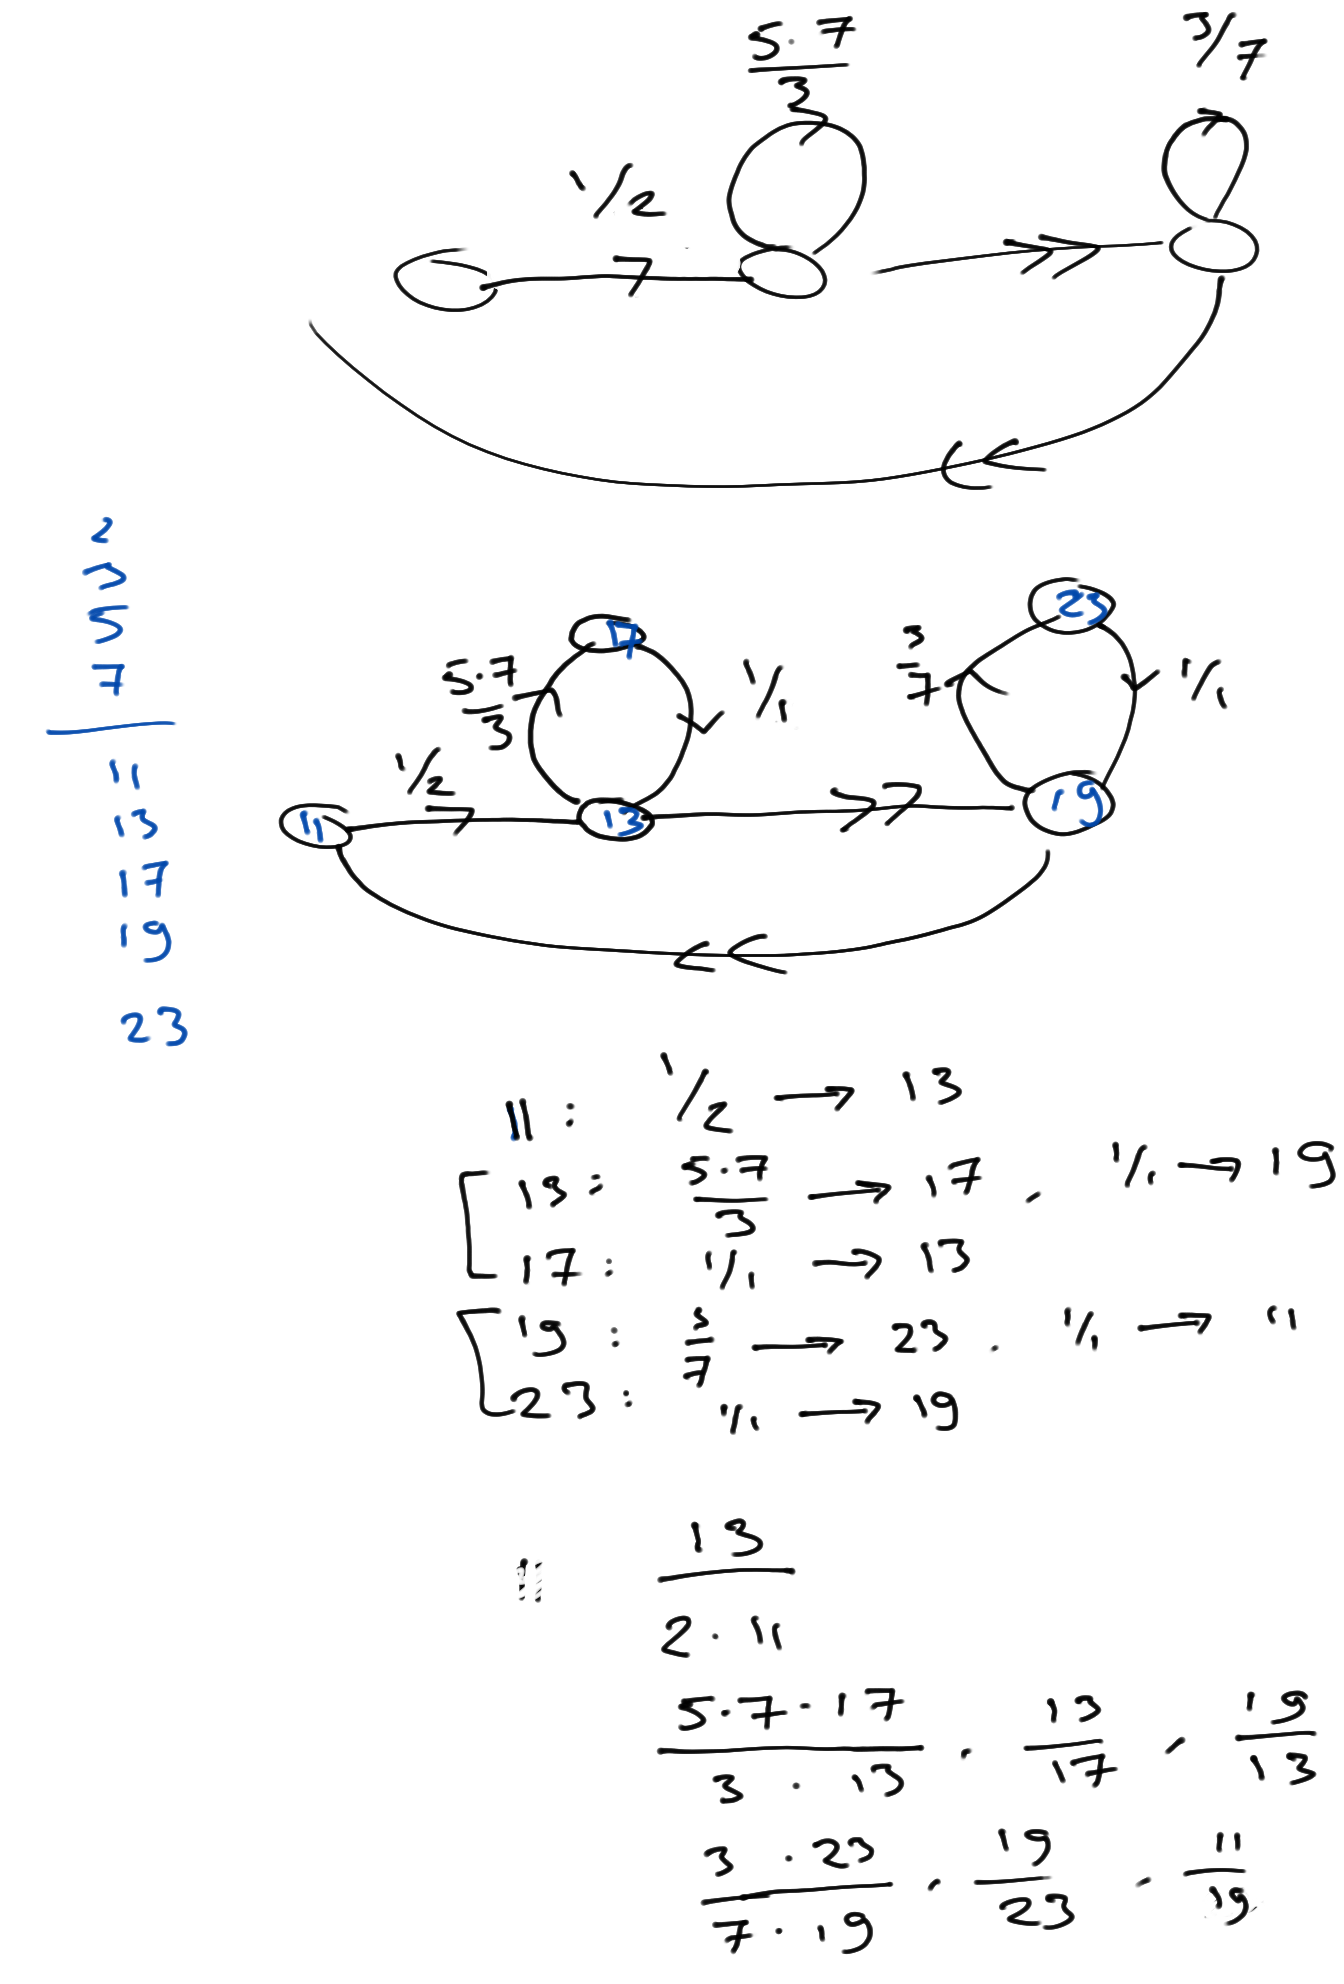 5·7/3
3/7
1/2
2
3
5
7
11
13
17
19
23
17
23
5·7/3
1/1
3/7
1/1
1/2
11
13
19
11: 1/2 → 13
13: 5·7/3 → 17, 1/1 → 19
17: 1/1 → 13
19: 3/7 → 23. 1/1 → 11
23: 1/1 → 19
11
13/2·11
5·7·17/3·13, 13/17, 19/13
3·23/7·19, 19/23, 11/19